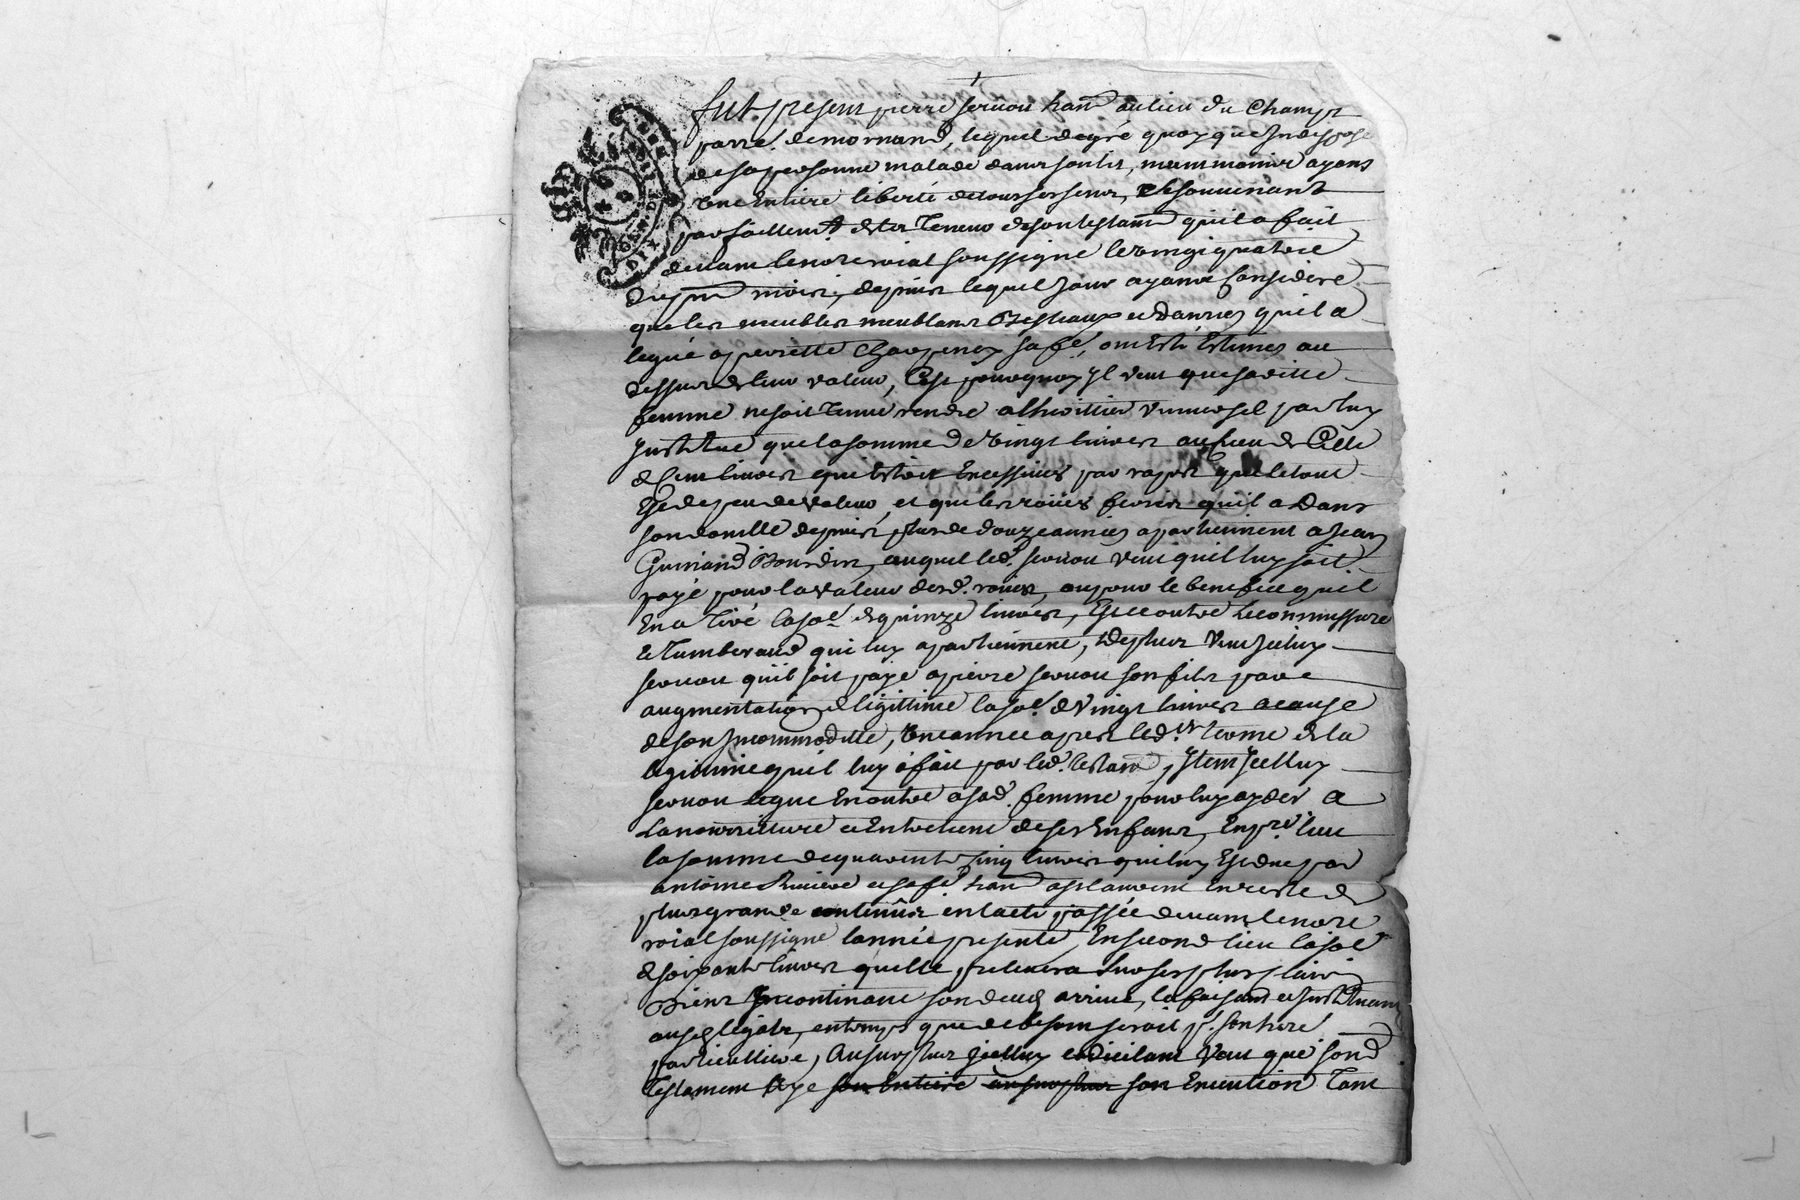 fut present pierre servou hant au lieu du Champt
parre. de mornand, lequel de gré quoy que Indispose
de sa personne malade dans son lit, neantmoins ayant
une Entiere liberté de tous ses sens, Et se souvenant
parfaitemt. de la Teneur de son testamt quil a fait
devant le nore roial soussigné le vingt quatrie
du pnt mois, depuis lequel jour ayant Consideré
que les meubles meublans Bestiaux et danrées quil a
legué a pierrette Charpenay sa fe, ont Esté Estimés au
dessus de leur valeur, C'est pourquoy Il veut que sa ditte
femme ne soit tenue rendre a lheritier universel par luy
Institué que la somme de vingt livres au lieu de Celle
de Cent livres qui Estoit Excessives par raport que le tout
Est de peu de valeur, et que les roües ferrées quil a Dans
son domille depuis plus de douze années apartiennent a Jean
Guinand Bourdin, auquel led. servou veut quil luy soit
payé pour la valeur desd. roües, ou pour le benefice quil
En a Tiré la soe. de quinze livres, Et en outre
et tumberaud qui luy apartiennent, De plus Veut Icelluy
servou quil soit payé a pierre servou son fils par
augmentation de ligittime la soe. de Vingt livres a cause
de son Incommodité, une année apres led. terme de la
legitime quil luy a fait par led. testamt, Item Icelluy
servou legue En outre a sad. femme pour luy ayder a
La nourriture et Entretient de ses Enfans, En pr. lieu
la somme de quarente Cinq livres qui luy Est due par
antoine et sa fe. hant a st laurent En reste de
plus grande contenüe en lacte passée devant le nore
roial soussigné lannée presente, En second lieu la soe
de soixante livres quelle prelevera sur ses plus clairs
Biens Incontinant son deces arrivé, la faisant et Instituant
auxd legats, en temps que de besoin seroit p. son here
particulliere, Au surplus Icelluy codicilant Veut que sond
Testament Aye son Entiere au surplus son Execution Tant